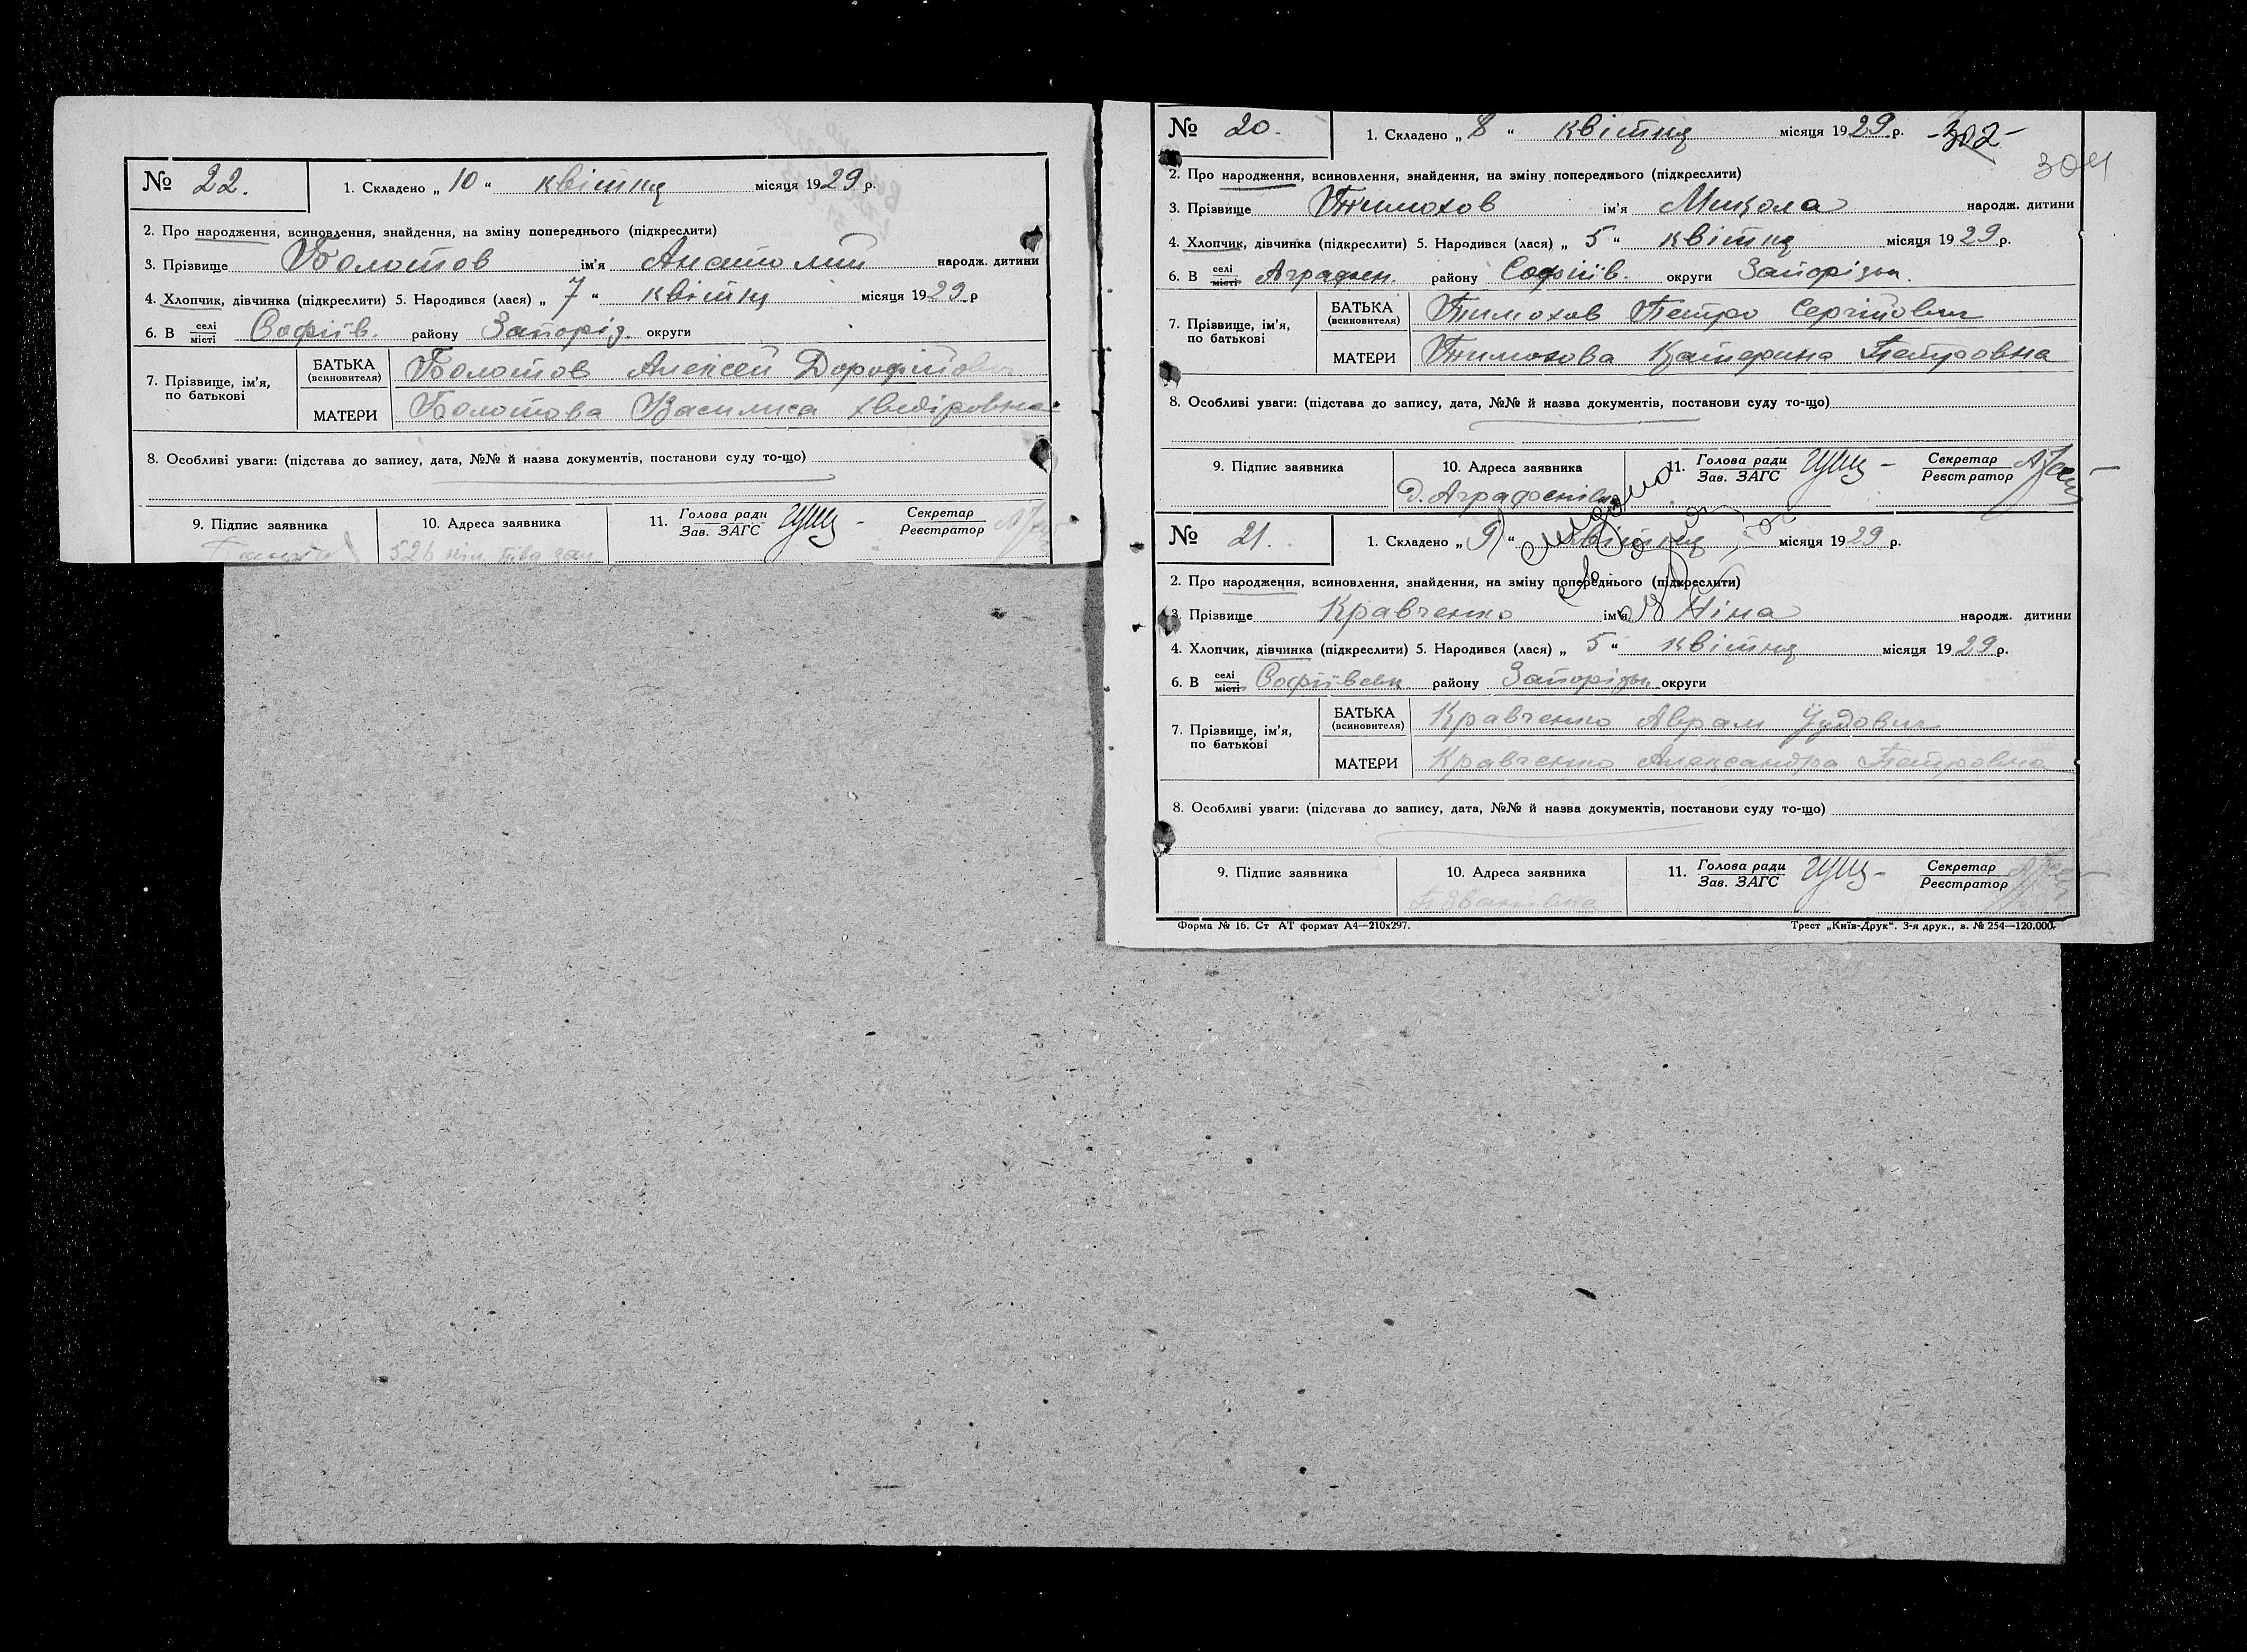 № 22. 1. Складено „ 10 “ квітня місяця 1929 р.
2. Про народження, всиновлення, знайдення, на зміну попереднього (підкреслити)
3. Прізвище Болотов ім'я Анатолий народж. дитини
4. Хлопчик, дівчинка (підкреслити) 5. Народився (лася) „ 7 “ квітня місяця 1929 р
6. В селі місті Софіїв. району Запоріз. округи
7. Прізвище, ім'я, по батькові
БАТЬКА (всиновителя) Болотов Алексей Дорофійович
МАТЕРИ Болотова Василиса Хведіровна
8. Особливі уваги: (підстава до запису, дата, №№ й назва документів, постанови суду то-що)
9. Підпис заявника 10. Адреса заявника 11. Голова ради Зав. ЗАГС Секретар Реєстратор
526 кіл.
№ 20. 1. Складено „ 8 “ квітня місяця 1929 р. -302-
304
2. Про народження, всиновлення, знайдення, на зміну попереднього (підкреслити)
3. Прізвище Тимохов ім'я Микола народж. дитини
4. Хлопчик, дівчинка (підкреслити) 5. Народився (лася) „ 5 “ квітня місяця 1929 р.
6. В селі місті Аграфен. району Софіїв. округи Запорізьк.
7. Прізвище, ім'я, по батькові
БАТЬКА (всиновителя) Тимохов Петро Сергійович
МАТЕРИ Тимохова Катерина Петровна
8. Особливі уваги: (підстава до запису, дата, №№ й назва документів, постанови суду то-що)
9. Підпис заявника 10. Адреса заявника 11. Голова ради Зав. ЗАГС Секретар Реєстратор
д. Аграфенівка
№ 21. 1. Складено „ 9 “ квітня місяця 1929 р.
2. Про народження, всиновлення, знайдення, на зміну попереднього (підкреслити)
3. Прізвище Кравченко ім'я Ніна народж. дитини
4. Хлопчик, дівчинка (підкреслити) 5. Народився (лася) „ 5 “ квітня місяця 1929 р.
6. В селі місті Софіївськ. району Запорізьк. округи
7. Прізвище, ім'я, по батькові
БАТЬКА (всиновителя) Кравченко Аврам Юдович
МАТЕРИ Кравченко Александра Петровна
8. Особливі уваги: (підстава до запису, дата, №№ й назва документів, постанови суду то-що)
9. Підпис заявника 10. Адреса заявника 11. Голова ради Зав. ЗАГС Секретар Реєстратор
Форма № 16. Ст АТ формат А4—210х297. Трест „Київ-Друк“. 3-я друк., з. № 254—120.000.